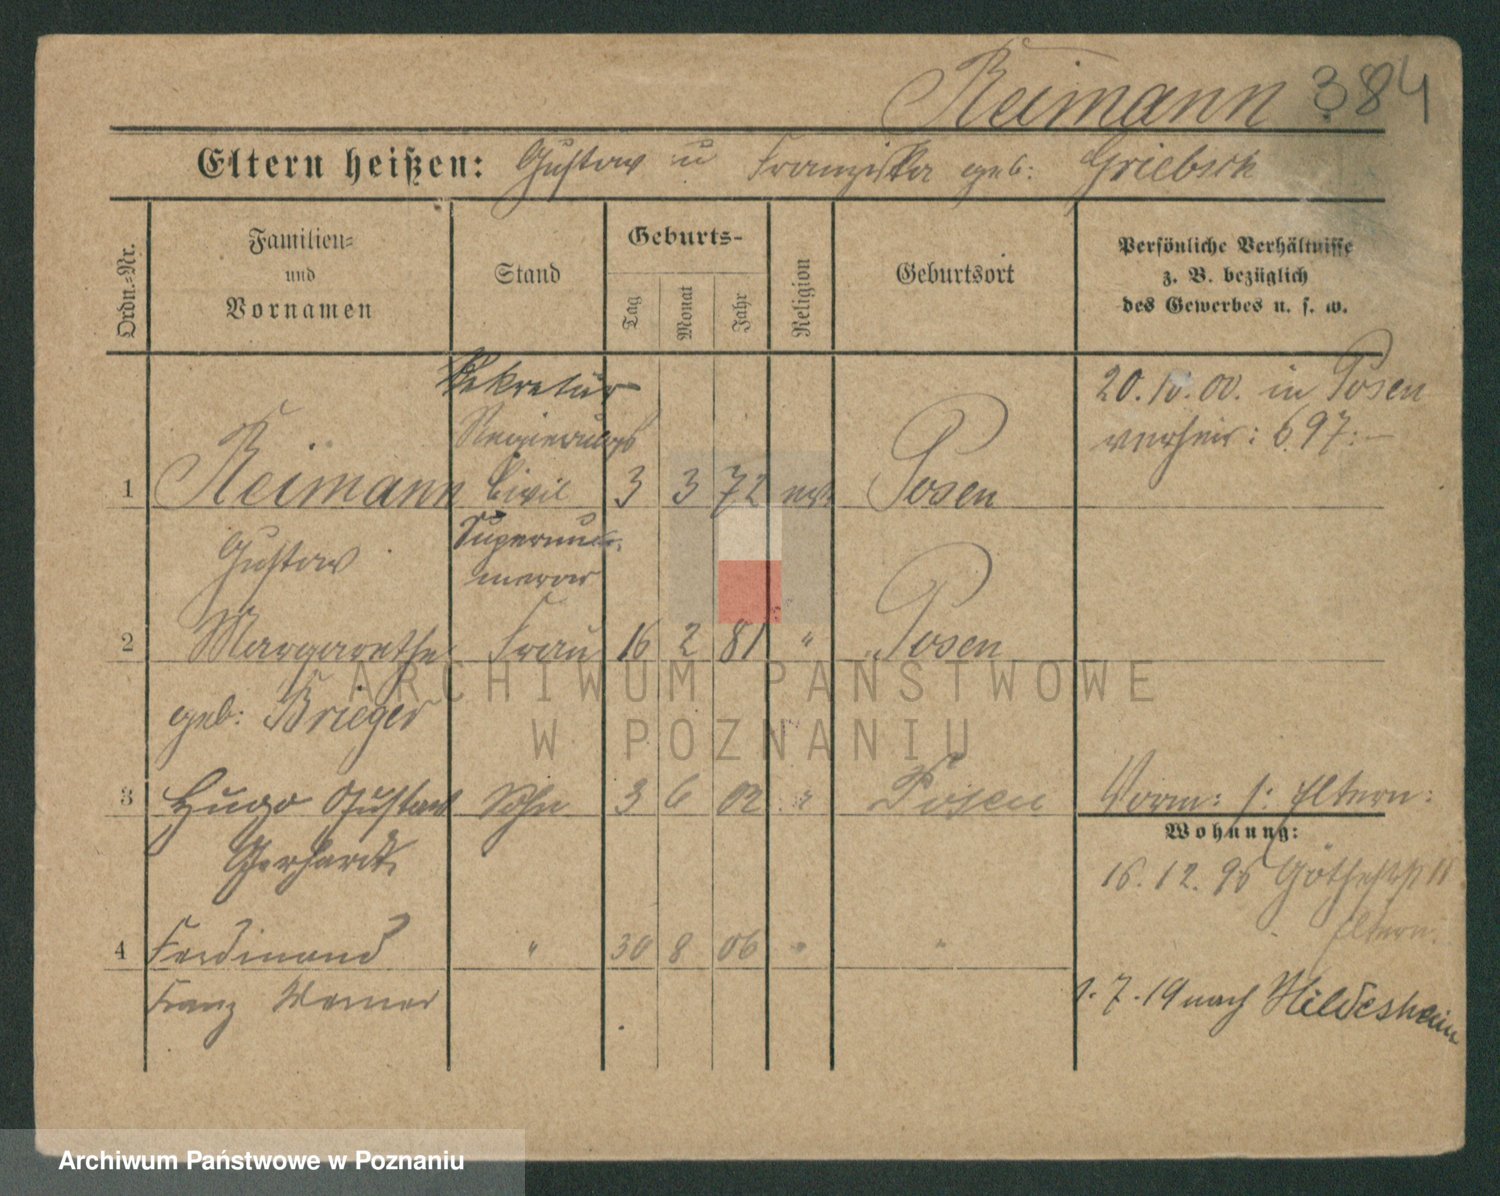 Reimann 384
Eltern heißen: Gustav u Franziska geb: Griebsch
Ordn.-Nr.
Familien-
und
Vornamen
Stand
Geburts-
Tag
Monat
Jahr
Religion
Geburtsort
Persönliche Verhältnisse
z. B. bezüglich
des Gewerbes u. s. w.
Sekretär
20.10.00. in Posen
Regierungs
verheir: 697:
1 Reimann Civil 3 3 72 Posen
Gustav
Supernu-
merar
2 Margarethe Frau 16 2 81 " Posen
geb: Brieger
3 Hugo Gustav Sohn 3 6 02 " Posen
Vorm: s: Eltern:
Gerhardt
Wohnung:
16.12.96 Göthestr
Eltern.
4 Ferdinand " 30 8 06 " "
Franz Werner
1.7.19 nach Hildesheim
ARCHIWUM PAŃSTWOWE
W POZNANIU
Archiwum Państwowe w Poznaniu